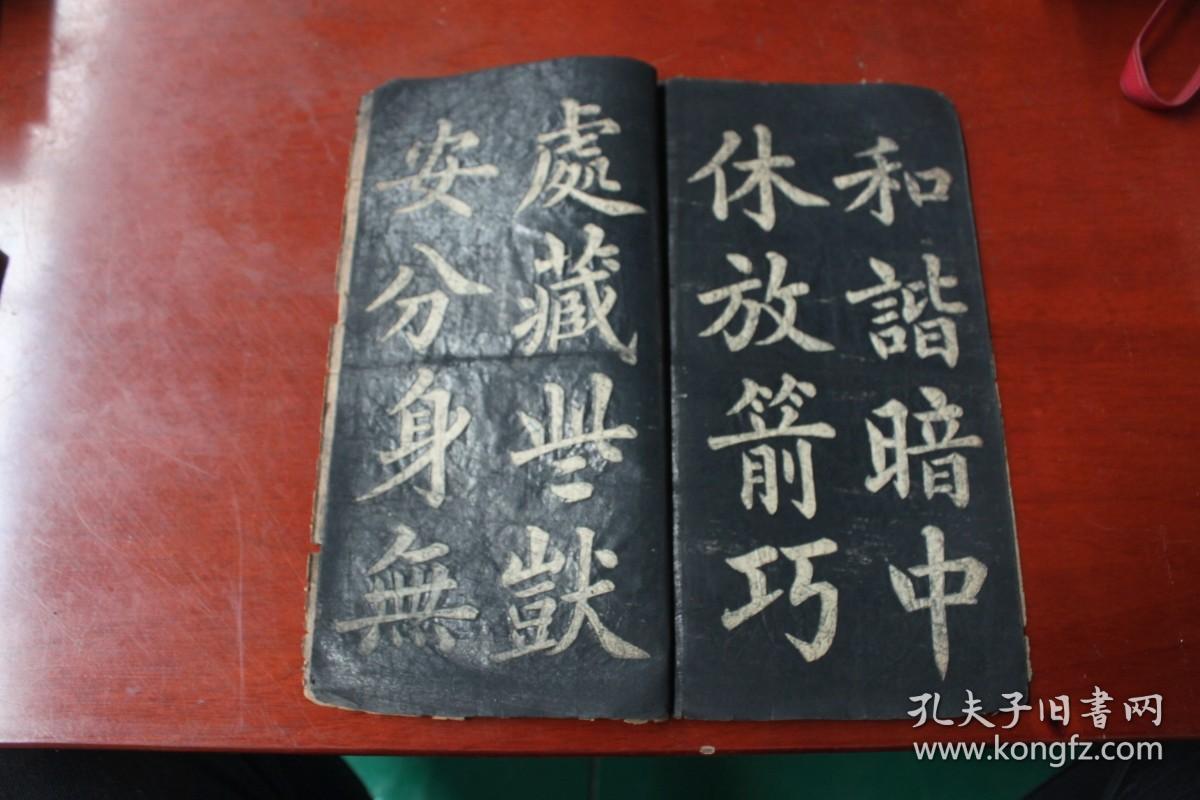 和諧暗中
休放箭巧
處藏些獃
安分身無
孔夫子旧書网
www.kongfz.com